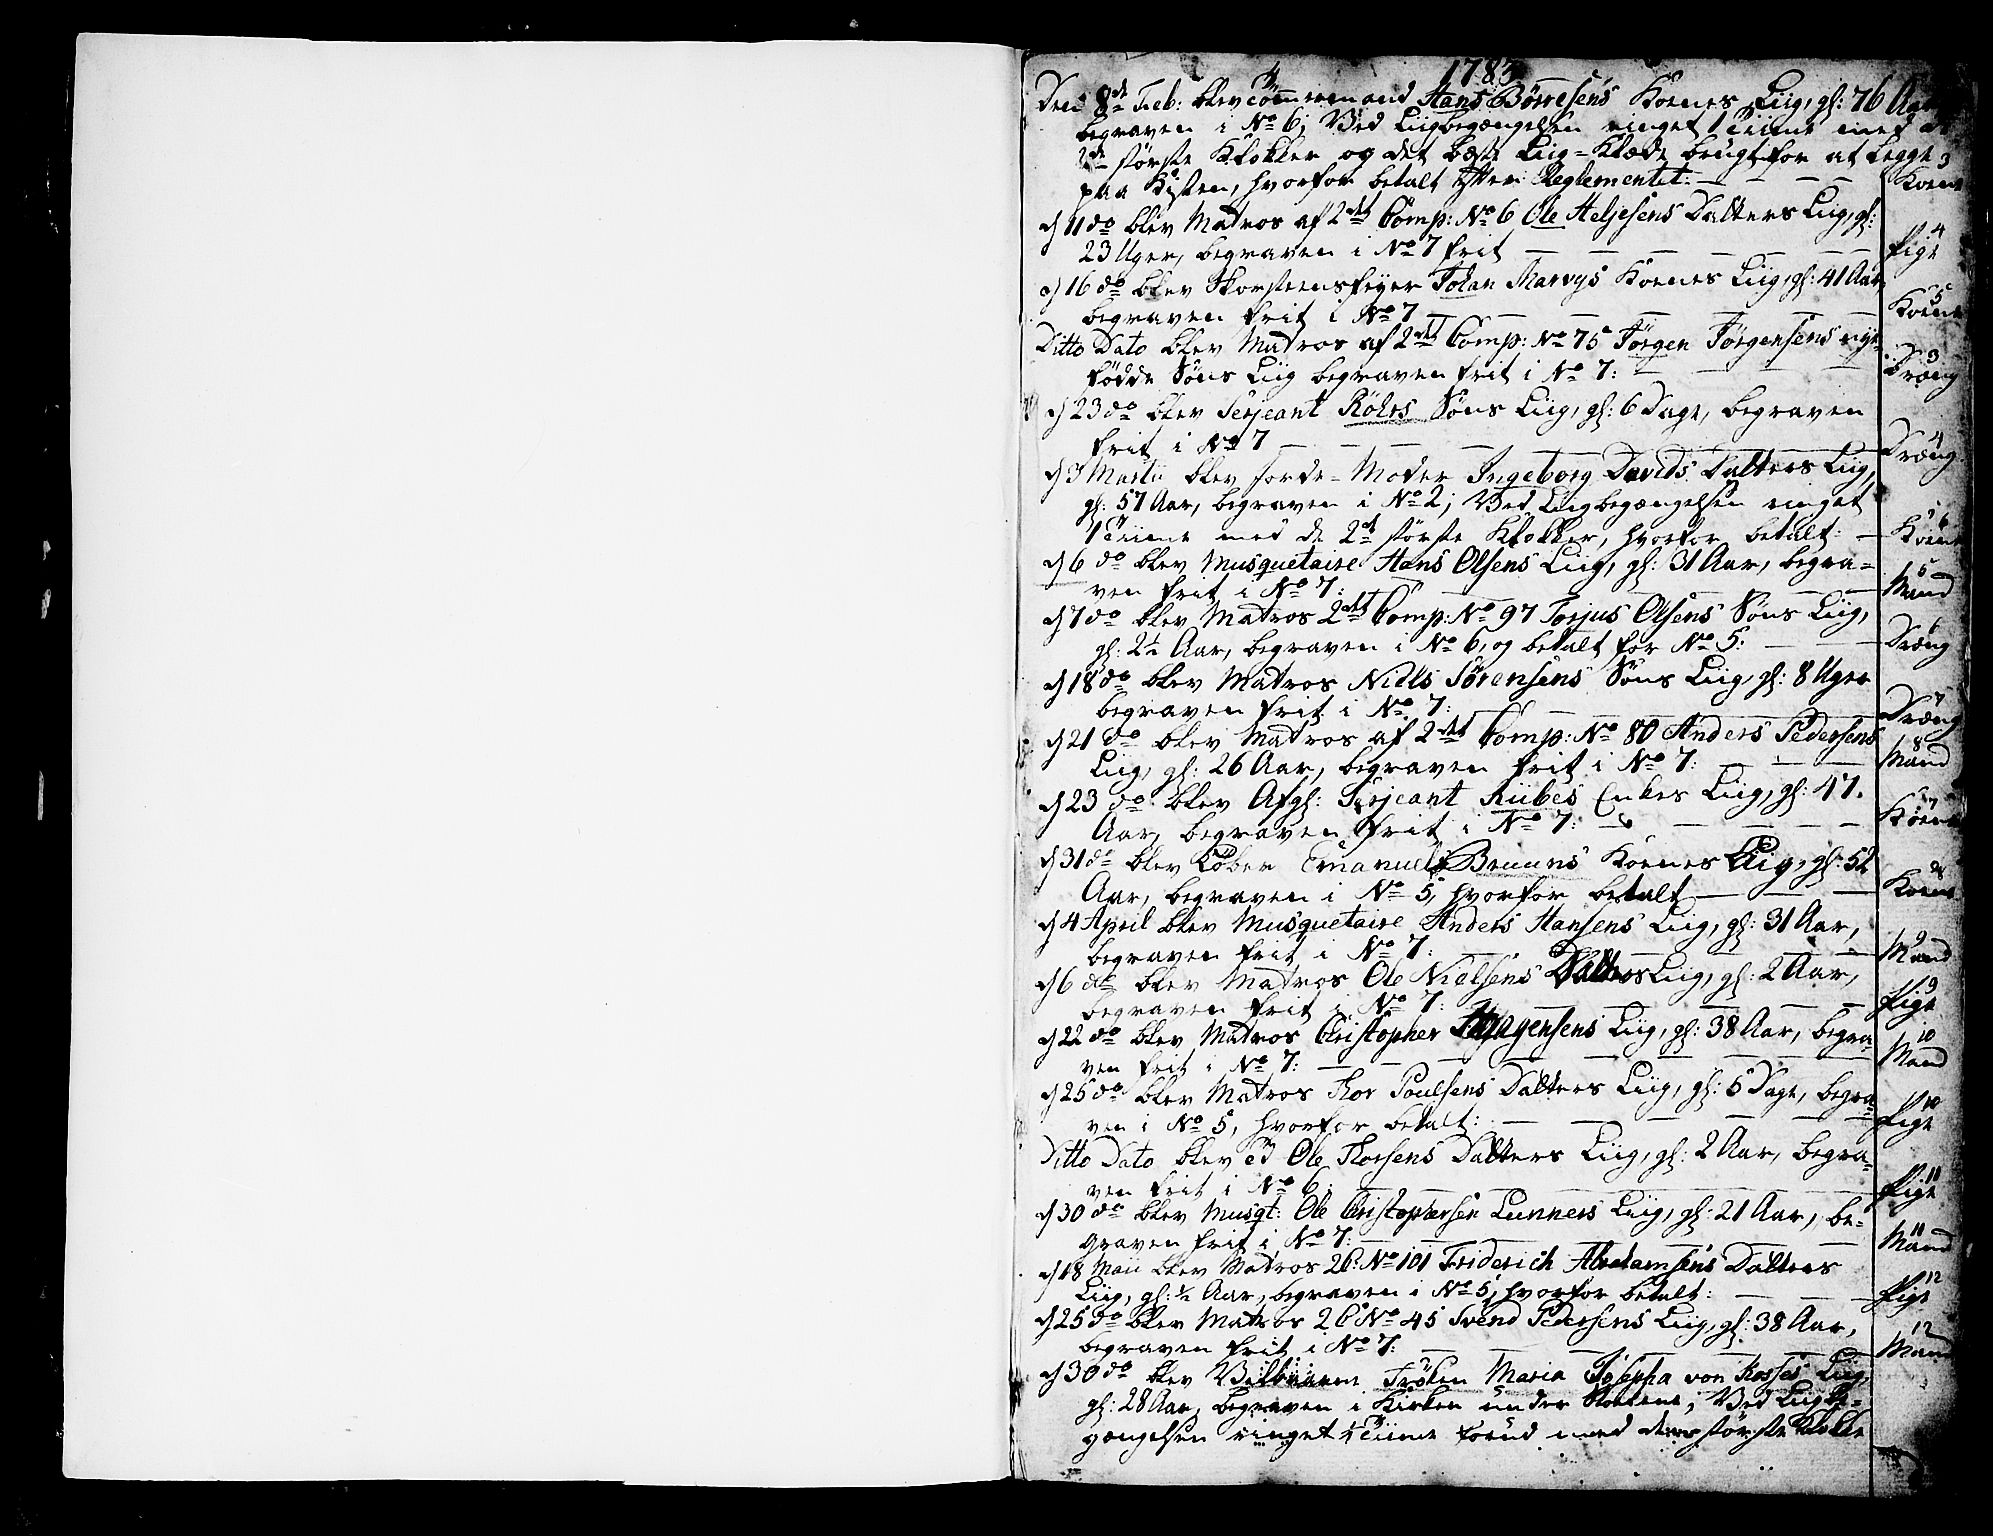 1783
Den 8de Feb: blev Tömmermand Hans Börresens Koenes Liig, gl: 76 Aar
begraven i No 6; Ved Liigbegængelsen ringet 1 Tiime med de
2de störste Klokker og det beste Liig-Klæde brugt for at legge 3
paa Kisten, hvorfor betalt efter Reglementet: Koene
d 11 do blev Matros af 2det Comp: No 6 Ole Heljesens Datters Liig, gl: 4
23 Uger, begraven i No 7 frit Pige
d 16 do blev Skorsteensfeyer Johan Marvys Koenes Liig, gl: 41 Aar, 5
begraven frit i No 7 Koene
Ditto Dato blev Matros af 2det Comp: No 75 Jörgen Jörgensens nye- 3
födde Söns Liig begraven frit i No 7: Dræng
d 23 do blev Serjeant Röhrs Söns Liig, gl: 6 Dage, begraven 4
frit i No 7 Dræng
d 3 Martii blev Jorde-Moder Ingeborg Davids Datters Liig,
gl: 57 Aar, begraven i No 2; Ved Liigbegængelsen ringet 6
1 Tiime med de 2d störste Klokker, hvorfor betalt: Koene
d 6 do blev Musquetaire Hans Olsens Liig, gl: 31 Aar, begra- 5
ven frit i No 7: Mand
d 7 do blev Matros 2det Comp: No 97 Torjus Olsens Söns Liig, 6
gl: 2½ Aar, begraven i No 6, og betalt for No 5: Dræng
d 18 do blev Matros Niels Sörensens Söns Liig, gl: 8 Uger 7
begraven frit i No 7: Dræng
d 21 do blev Matros af 2det Comp: No 80 Anders Pedersens 8
Liig, gl: 26 Aar, begraven frit i No 7: Mand
d 23 do blev Afgl: Serjeant Rübes Enkes Liig, gl: 47. 7
Aar, begraven frit i No 7: Koene
d 31 do blev Töber Emanuel Bruuns Koenes Liig, gl: 52 8
Aar, begraven i No 5, hvorfor betalt Koene
d 4 April blev Musquetaire Anders Hansens Liig, gl: 31 Aar, 9
begraven frit i No 7: Mand
d 6 do blev Matros Ole Nielsens Datters Liig, gl: 2 Aar, 9
begraven frit i No 7: Pige
d 22 do blev Matros Christopher Liig, gl: 38 Aar, begra- 10
ven frit i No 7: Mand
d 25 do blev Matros Thor Poulsens Datters Liig, gl: 5 Dage, begra- 10
ven i No 5, hvorfor betalt: Pige
Ditto Dato blev Ole Thorsens Datters Liig, gl: 2 Aar, begra- 11
ven frit i No 6: Pige
d 30 do blev Musqt: Ole Christophersen Lunners Liig, gl: 21 Aar, be- 11
graven frit i No 7: Mand
d 18 Maii blev Matros 2C: No 101 Friderich Abrahamsens Datters 12
Liig, gl: ½ Aar, begraven i No 5, hvorfor betalt: Pige
d 25 do blev Matros 2C No 45 Svend Pedersens Liig, gl: 38 Aar, 12
begraven frit i No 7: Mand
d 30 do blev Fröken Maria Josepha von Liig,
gl: 28 Aar, begraven i Kirken under Ved Liigbe-
gængelsen ringet ½ Tiime forud med den störste Klokke